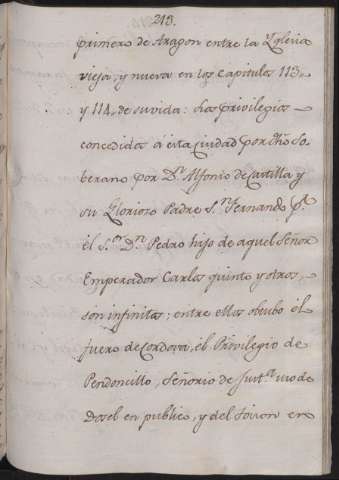 213.
primero de Aragon entre la Yglesia
vieja, y nueva en los Capitulos 113,
y 114, de su vida: Los privilegios
concedidos à esta Ciudad por dho So-
berano por Dn. Alfonso de Castilla y
su Glorioso Padre Sn. Fernando pr.
el Sor. Dn. Pedro hijo de aquel Señor
Emperador Carlos quinto y otros,
son infinitos; entre ellos obtubo el
fuero de Cordova, el Privilegio de
Pendoncillo, Señorio de uso de
Dosel en publico, y del en